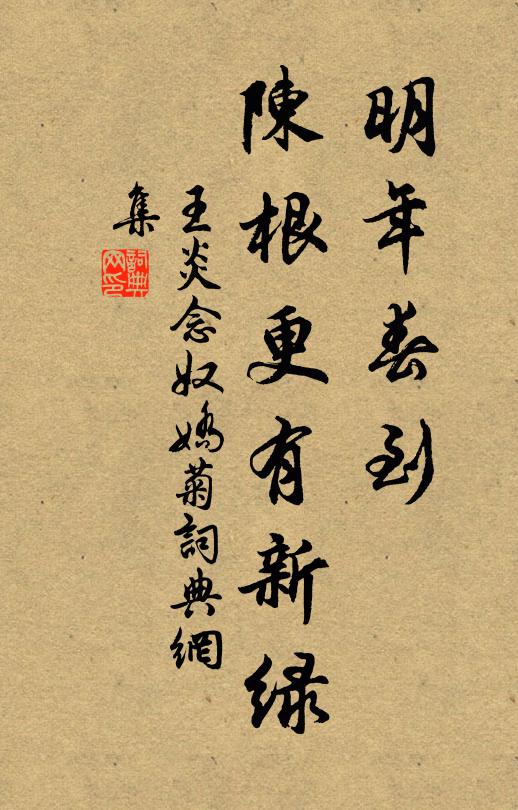 明年春到
陳根更有新綠
王炎念奴嬌菊詞典網
集
詞典網印